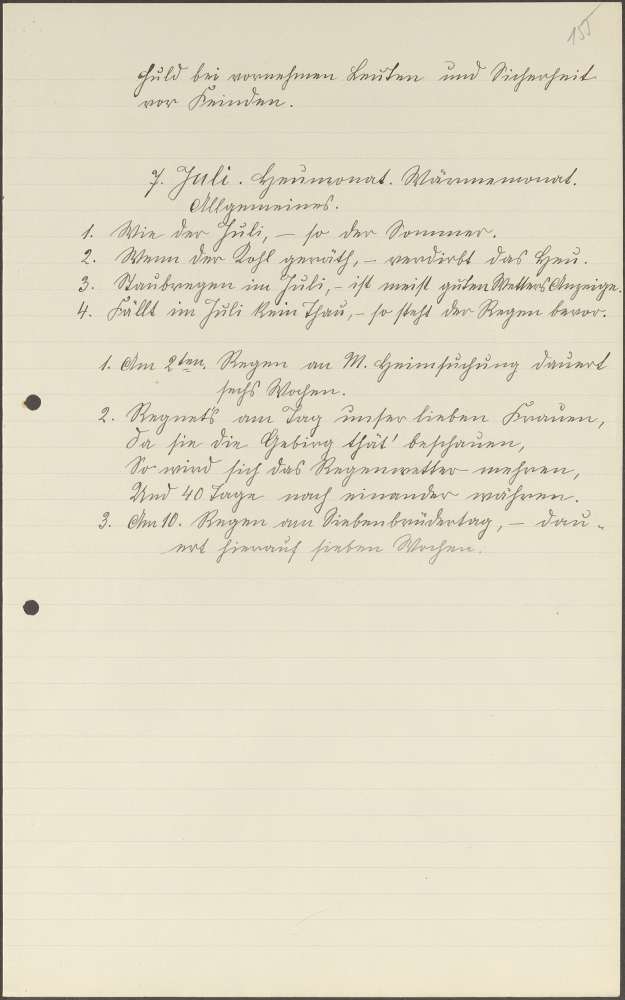 155
Huld bei vornehmen Leuten und Sicherheit
vor Feinden.
7. Juli. Heumonat. Wärmemonat.
Allgemeines.
1. Wie der Juli, – so der Sommer.
2. Wenn der Kohl geräth, – verdirbt das Heu.
3. Staubregen im Juli, – ist meist guten Wetters Anzeige.
4. Fällt im Juli kein Thau, – so steht der Regen bevor.
1. Am 2ten. Regen an M. Heimsuchung dauert
sechs Wochen.
2. Regnet's am Tag unser lieben Frauen,
Da sie die Gebirg thät' beschauen,
So wird sich das Regenwetter mehren,
Und 40 Tage nach einander währen.
3. Am 10. Regen am Siebenbrüdertag, – dau-
ert hierauf sieben Wochen.